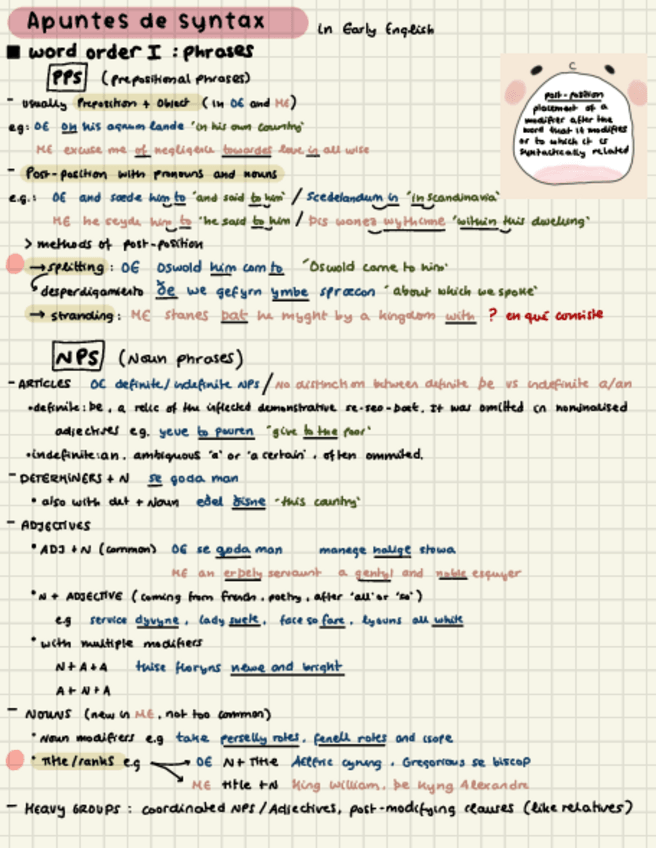 Apuntes de Syntax in Early English
word order I : phrases
PPS (prepositional phrases)
post-position
placement of a
modifier after the
word that it modifies
or to which it is
syntactically related
- usually Preposition + Object (in OE and ME)
eg: OE on his agnum lande "in his own country"
ME excuse me of negligence towardes love in all wise
- Post-position with pronouns and nouns
e.g.: OE and sæde him to "and said to him" / Scedelandum in "in Scandinavia"
ME he seyde him to "he said to him / Dis wones wythinne "within this dwelling"
> methods of post-position
→ splitting : OE Oswold him com to "Oswold came to him"
desperdigamiento ðe we gefyrn ymbe spræcon "about which we spoke"
→ stranding : ME stanes þat he myght by a kingdom with ? en qué consiste
NPS (Noun phrases)
- ARTICLES OE definite/indefinite NPs / No distinction between definite þe vs indefinite a/an
• definite: þe, a relic of the inflected demonstrative se-seo-þaet. It was omitted in nominalised
adjectives e.g. yeue to pouren "give to the poor"
• indefinite: an. ambiguous "a" or "a certain". often ommited.
- DETERMINERS + N se goda man
• also with det + Noun eðel ðisne "this country"
- ADJECTIVES
• ADJ + N (common) OE se goda man manege halige stowa
ME an erþely servaunt a gentyl and noble esquyer
• N + ADJECTIVE (coming from french, poetry, after "all" or "so")
e.g service dyvyne, lady suete, face so fare, lyouns all white
• with multiple modifiers
N + A + A tuise floryns newe and bright
A + N + A
- NOUNS (new in ME, not too common)
• Noun modifiers e.g take perselly rotes, fenell rotes and isope
• Title/ranks e.g → OE N + Title Aelfric cyning, Gregorious se biscop
→ ME title + N King William, þe Kyng Alexandre
- HEAVY GROUPS : coordinated NPs / Adjectives, post-modifying clauses (like relatives)